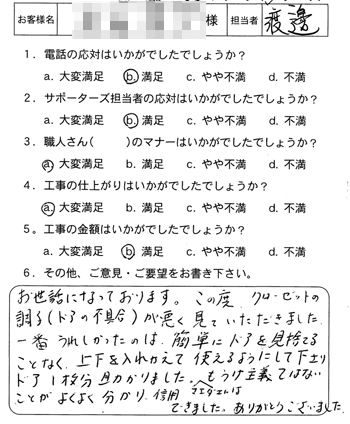 お客様名 様 担当者 渡邊
1．電話の応対はいかがでしたでしょうか？
a. 大変満足 b. 満足 c. やや不満 d. 不満
2．サポーターズ担当者の応対はいかがでしたでしょうか？
a. 大変満足 b. 満足 c. やや不満 d. 不満
3．職人さん( )のマナーはいかがでしたでしょうか？
a. 大変満足 b. 満足 c. やや不満 d. 不満
4．工事の仕上がりはいかがでしたでしょうか？
a. 大変満足 b. 満足 c. やや不満 d. 不満
5。工事の金額はいかがでしたでしょうか？
a. 大変満足 b. 満足 c. やや不満 d. 不満
6．その他、ご意見・ご要望をお書き下さい。
お世話になっております。この度、クローゼットの
調子(ドアの不具合)が悪く見ていただきました
一番うれしかったのは、簡単にドアを見捨てる
ことなく、上下を入れかえて使えるようにして下さり
ドア1枚分助かりました。もうけ主義ではない
ことがよくよく分かり、信用
できました。ありがとうございました